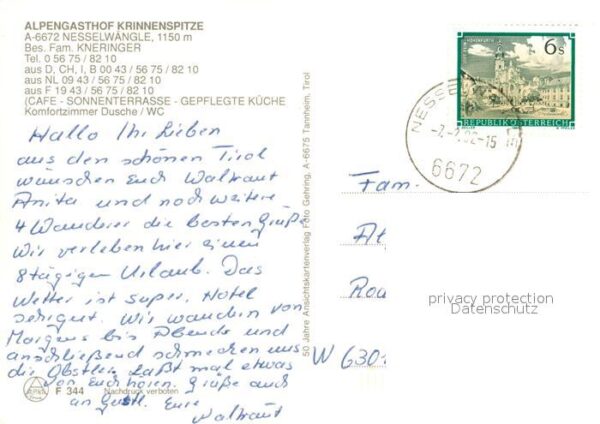 ALPENGASTHOF KRINNENSPITZE
A-6672 NESSELWÄNGLE, 1150 m
Bes. Fam. KNERINGER
Tel. 0 56 75 / 82 10
aus D, CH, I, B 00 43 / 56 75 / 82 10
aus NL 09 43 / 56 75 / 82 10
aus F 19 43 / 56 75 / 82 10
(CAFE - SONNENTERRASSE - GEPFLEGTE KÜCHE
Komfortzimmer Dusche / WC
Hallo Ihr Lieben
aus dem schönen Tirol
wünschen Euch Waltraut
Anita und noch weitere
4 Wanderer die besten Grüße
Wir verleben hier einen
8tägigen Urlaub. Das
Wetter ist super, Hotel
sehr gut. Wir wandern von
Morgens bis Abends und
anschließend schmecken uns
die Obstler. Laßt mal etwas
von Euch hören. Grüße auch
an Gustl. Eure
Waltraut
F 344 Nachdruck verboten
50 Jahre Ansichtskartenverlag Foto Gehring, A-6675 Tannheim, Tirol
6 S
REPUBLIK ÖSTERREICH
NESSE
6672
Fam.
W 630
privacy protection
Datenschutz